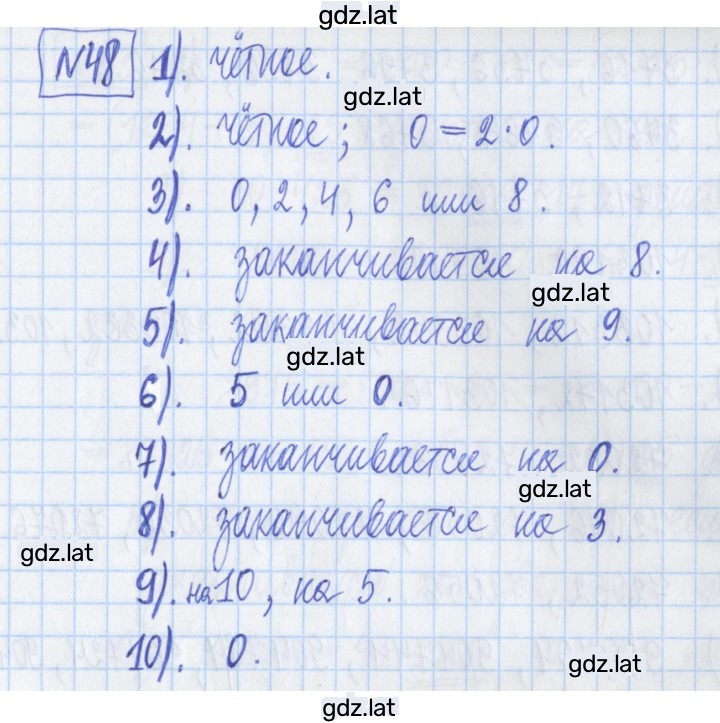 gdz.lat
№48 1). чётное.
gdz.lat
2). чётное; 0 = 2·0.
3). 0, 2, 4, 6 или 8.
4). заканчивается на 8.
gdz.lat
5). заканчивается на 9.
gdz.lat
6). 5 или 0.
7). заканчивается на 0.
gdz.lat
8). заканчивается на 3.
gdz.lat
9). на 10, на 5.
10). 0.
gdz.lat
gdz.lat